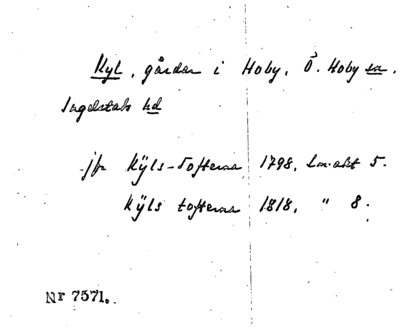 Kyl, gårdar i Hoby, Ö. Hoby sn.
Ingelstads hd
jfr Kÿls-Tofterna 1798, Lm.akt 5.
Kÿls tofterna 1818, " 8.
Nr 7571.